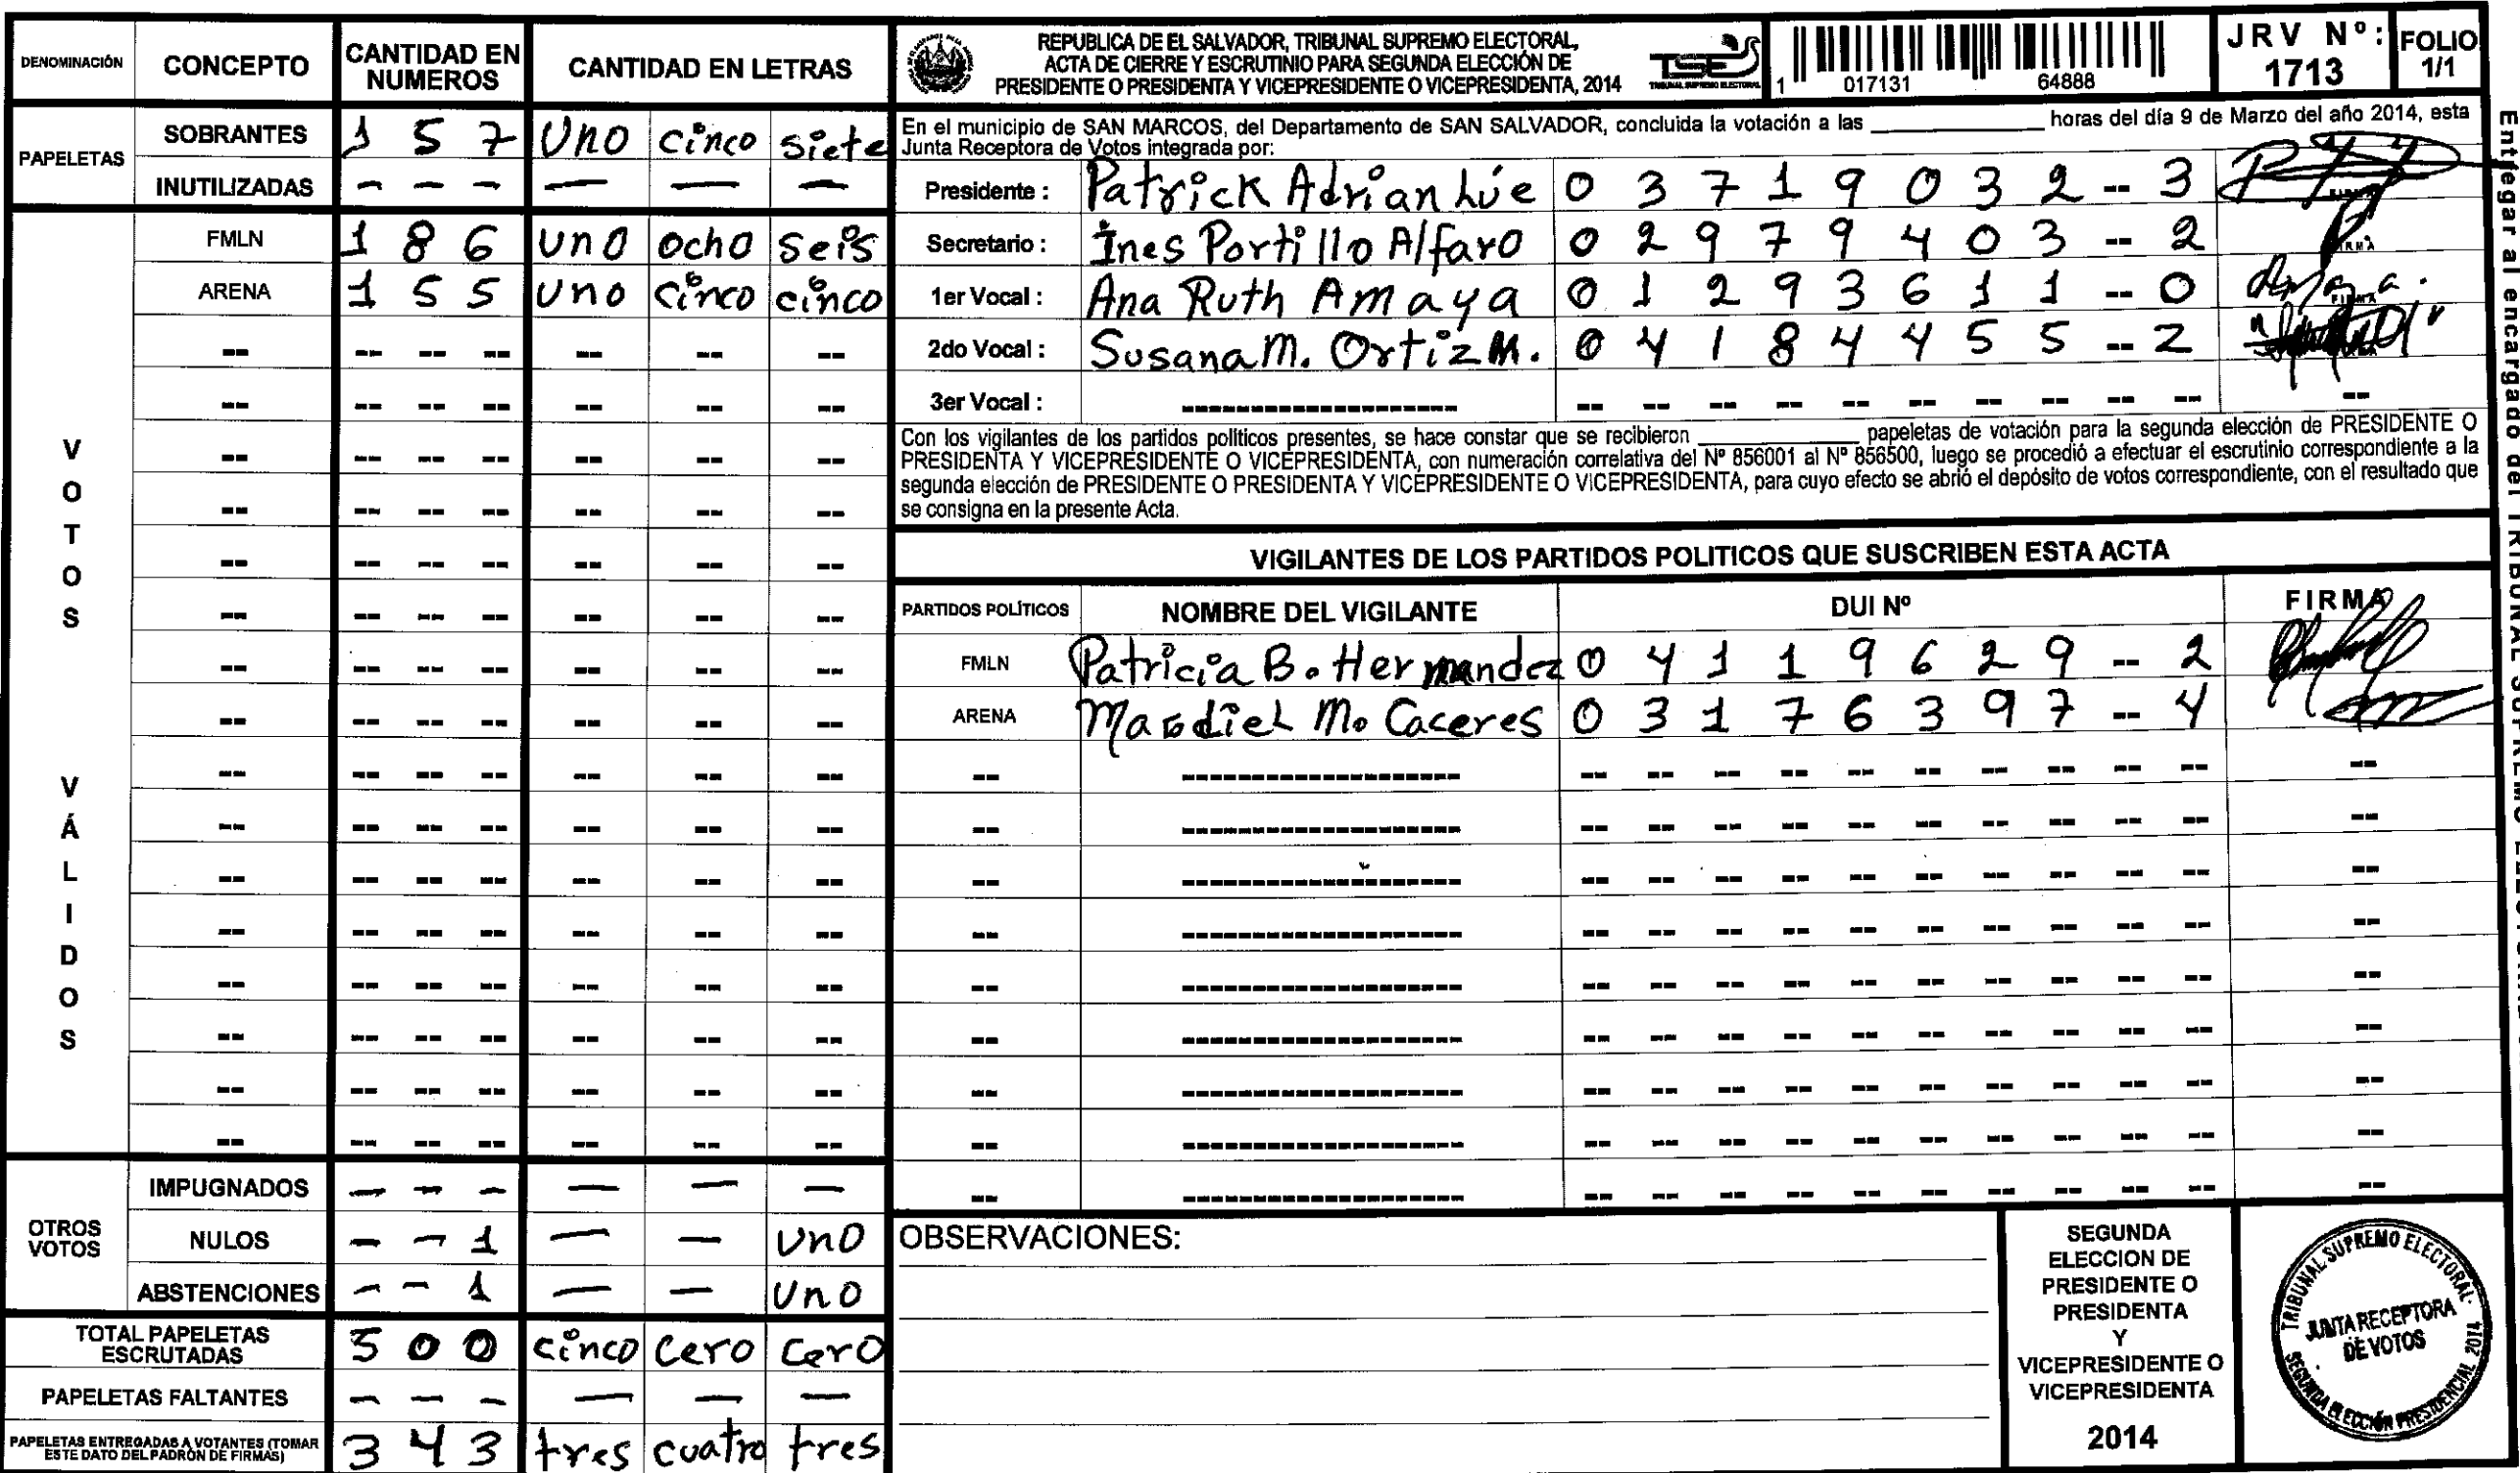 DENOMINACIÓN CONCEPTO CANTIDAD EN NUMEROS CANTIDAD EN LETRAS
PAPELETAS
SOBRANTES 1 5 7 Uno cinco siete
INUTILIZADAS - - - — — —
VOTOS VÁLIDOS
FMLN 1 8 6 uno ocho seis
ARENA 1 5 5 uno cinco cinco
OTROS VOTOS
IMPUGNADOS - - - — — —
NULOS - - 1 — — uno
ABSTENCIONES - - 1 — — uno
TOTAL PAPELETAS ESCRUTADAS 5 0 0 cinco cero cero
PAPELETAS FALTANTES - - - — — —
PAPELETAS ENTREGADAS A VOTANTES (TOMAR ESTE DATO DEL PADRÓN DE FIRMAS) 3 4 3 tres cuatro tres
REPUBLICA DE EL SALVADOR, TRIBUNAL SUPREMO ELECTORAL,
ACTA DE CIERRE Y ESCRUTINIO PARA SEGUNDA ELECCIÓN DE
PRESIDENTE O PRESIDENTA Y VICEPRESIDENTE O VICEPRESIDENTA, 2014
TSE
TRIBUNAL SUPREMO ELECTORAL
1 017131 64888
JRV Nº: 1713
FOLIO 1/1
En el municipio de SAN MARCOS, del Departamento de SAN SALVADOR, concluida la votación a las ____ horas del día 9 de Marzo del año 2014, esta
Junta Receptora de Votos integrada por:
Presidente : Patrick Adrian Lúe 0 3 7 1 9 0 3 2 -- 3
Secretario : Ines Portillo Alfaro 0 2 9 7 9 4 0 3 -- 2
1er Vocal : Ana Ruth Amaya 0 1 2 9 3 6 1 1 -- 0
2do Vocal : Susana M. Ortiz M. 0 4 1 8 4 4 5 5 -- 2
3er Vocal :
Con los vigilantes de los partidos políticos presentes, se hace constar que se recibieron ____ papeletas de votación para la segunda elección de PRESIDENTE O
PRESIDENTA Y VICEPRESIDENTE O VICEPRESIDENTA, con numeración correlativa del Nº 856001 al Nº 856500, luego se procedió a efectuar el escrutinio correspondiente a la
segunda elección de PRESIDENTE O PRESIDENTA Y VICEPRESIDENTE O VICEPRESIDENTA, para cuyo efecto se abrió el depósito de votos correspondiente, con el resultado que
se consigna en la presente Acta.
VIGILANTES DE LOS PARTIDOS POLITICOS QUE SUSCRIBEN ESTA ACTA
PARTIDOS POLÍTICOS NOMBRE DEL VIGILANTE DUI Nº FIRMA
FMLN Patricia B. Hernandez 0 4 1 1 9 6 2 9 -- 2
ARENA M. Caceres 0 3 1 7 6 3 9 7 -- 4
OBSERVACIONES:
SEGUNDA
ELECCION DE
PRESIDENTE O
PRESIDENTA
Y
VICEPRESIDENTE O
VICEPRESIDENTA
2014
TRIBUNAL SUPREMO ELECTORAL
JUNTA RECEPTORA
DE VOTOS
SEGUNDA ELECCIÓN PRESIDENCIAL 2014
Entregar al encargado del TRIBUNAL SUPREMO